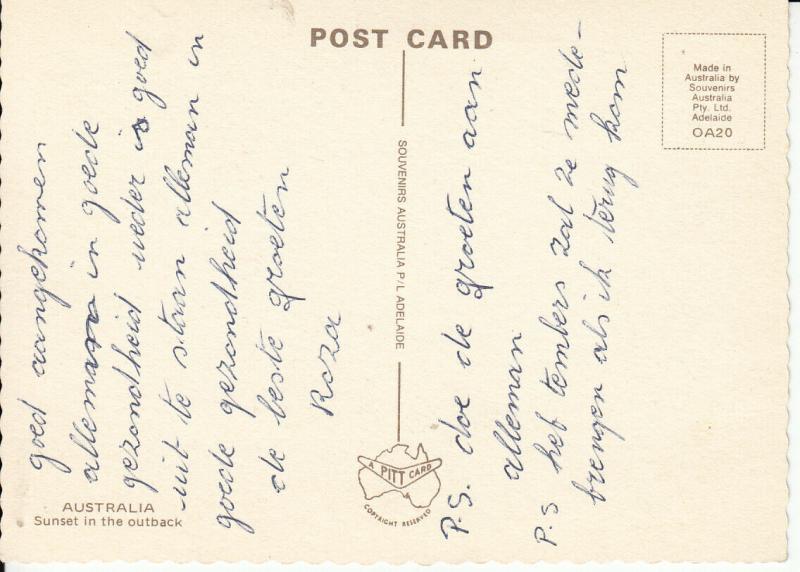 POST CARD
Made in
Australia by
Souvenirs
Australia
Pty. Ltd.
Adelaide
OA20
goed aangekomen
alleman in goede
gezondheid weder is goed
uit te staan alleman in
goede gezondheid
de beste groeten
Roza
SOUVENIRS AUSTRALIA P/L ADELAIDE
P.S. doe de groeten aan
alleman
P.S heb tembers zal ze mede-
brengen als ik terug kom
A PITT CARD
COPYRIGHT RESERVED
AUSTRALIA
Sunset in the outback